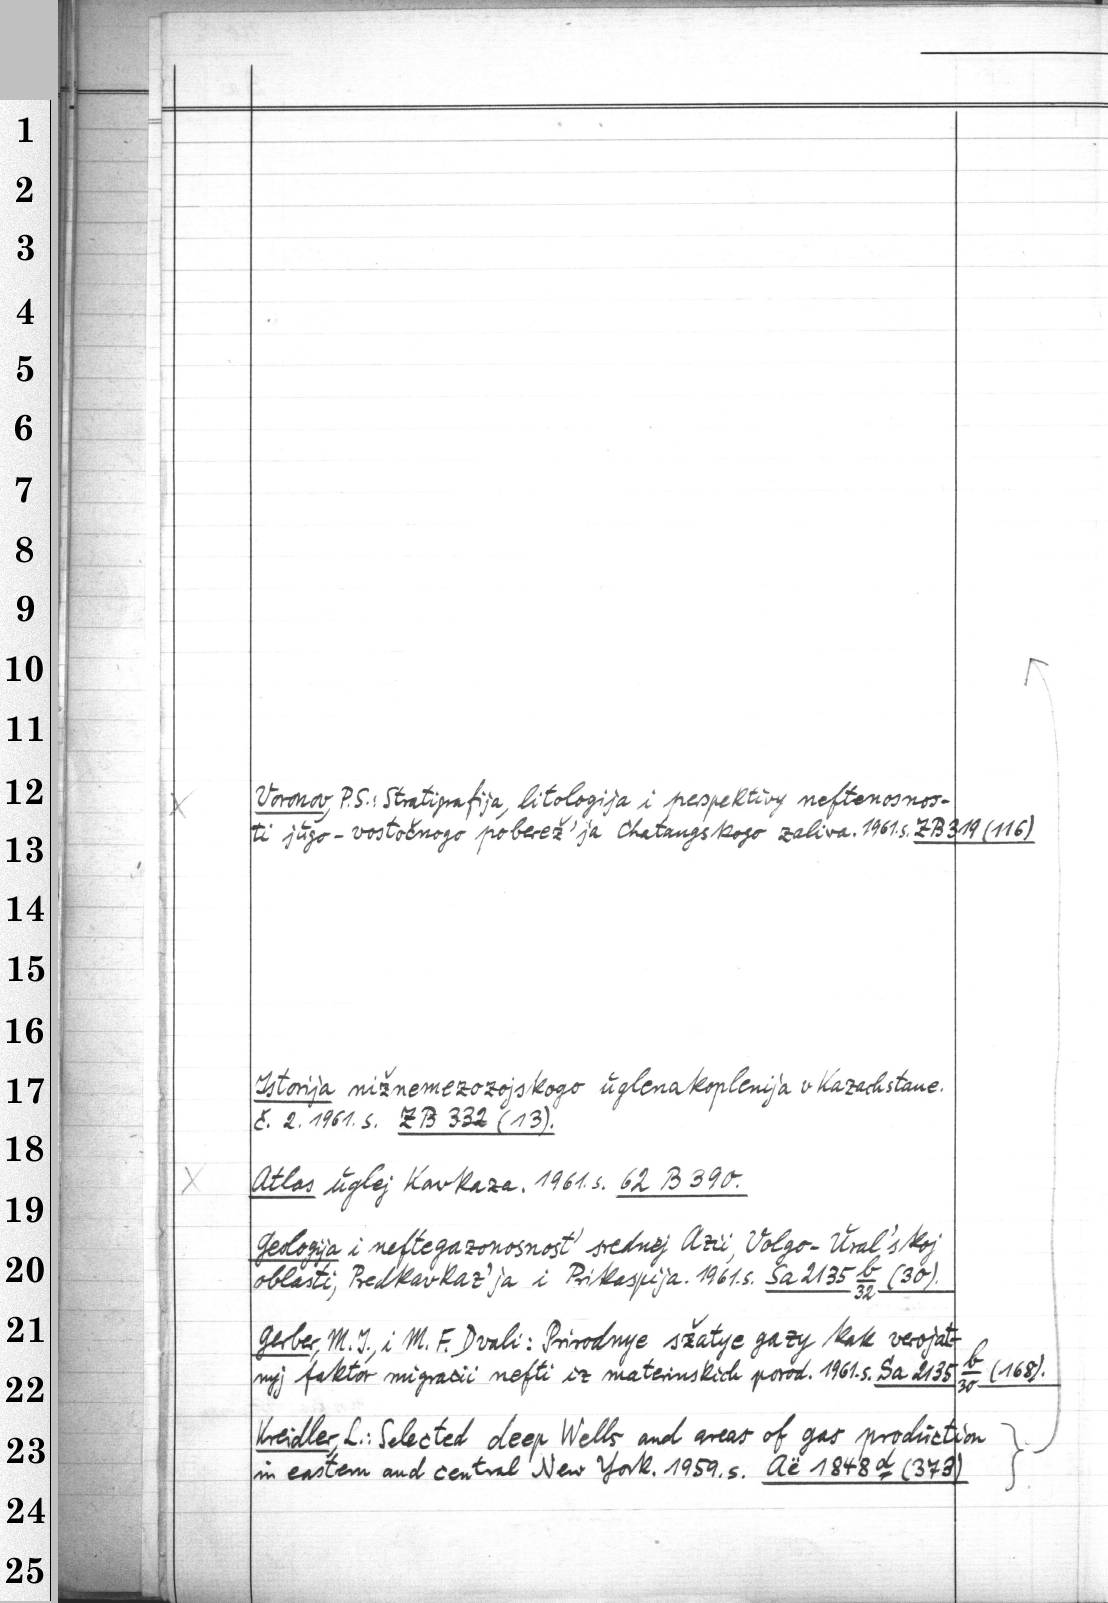 1
2
3
4
5
6
7
8
9
10
11
12
Voronov, P.S.: Stratigrafija, litologija i perspektivy neftenosnos-
ti jugo-vostočnogo poberež'ja Chatangskogo zaliva. 1961.s. ZB 319 (116)
13
14
15
16
17
Istorija nižnemezozojskogo uglenakoplenija v Kazachstane.
č. 2. 1961. s. ZB 332 (13).
18
Atlas uglej Kavkaza. 1961.s. 62 B 390.
19
Geologija i neftegazonosnost' srednej Azii, Volgo-Ural'skoj
20
oblasti, Predkavkaz'ja i Prikaspija. 1961.s. Sa 2135 b/32 (30).
21
Gerber, M.I., i M.F. Dvali: Prirodnye sžatye gazy kak verojat-
22
nyj faktor migracii nefti iz materinskich porod. 1961.s. Sa 2135 b/30 (168).
Kreidler, L.: Selected deep Wells and areas of gas production
23
in eastern and central New York. 1959.s. Aë 1848 d (373)
24
25